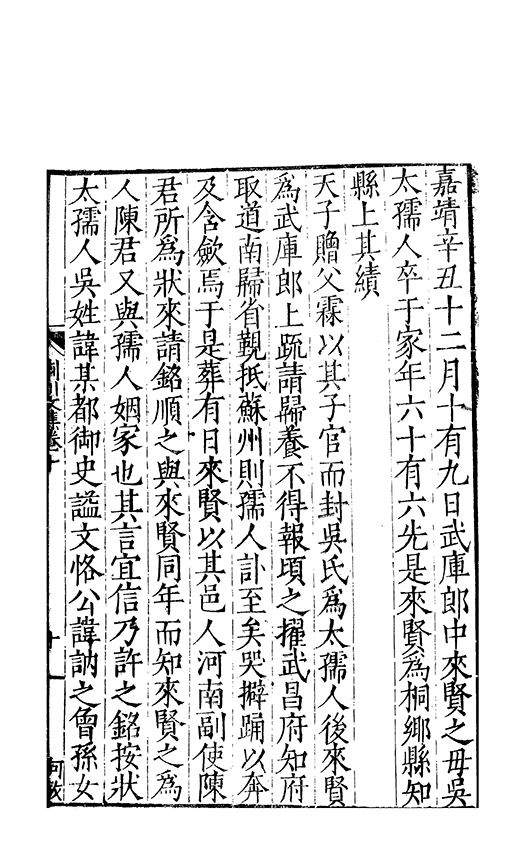 嘉靖辛丑十二月十有九日武庫郎中來賢之母吳
太孺人卒于家年六十有六先是來賢爲桐鄉縣知
縣上其績
天子贈父霖以其子官而封吳氏爲太孺人後來賢
爲武庫郎上疏請歸養不得報頃之擢武昌府知府
取道南歸省覲抵蘇州則孺人訃至矣哭擗踊以奔
及含歛焉于是葬有日來賢以其邑人河南副使陳
君所爲狀來請銘順之與來賢同年而知來賢之爲
人陳君又與孺人姻家也其言宜信乃許之銘按狀
太孺人吳姓諱某都御史謚文恪公諱訥之曾孫女
荆川文集卷十
十一
何敖